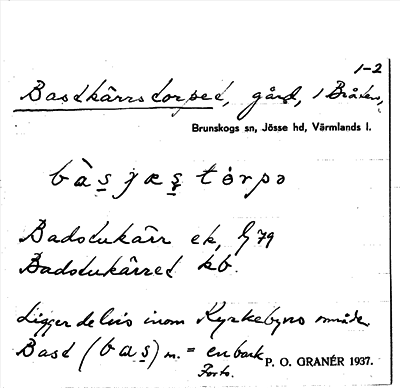 1-2
Bastkärrstorpet, gård, i Bråten,
Brunskogs sn, Jösse hd, Värmlands l.
bàs̱ jæş tórpə
Badstukärr ek, G 79
Badstukärret kb.
Ligger delvis inom Kyrkebyns område.
Bast (bas̱) m. = enbark
P. O. GRANÉR 1937.